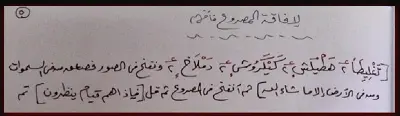 ٥
لإفاقة المصروع فافهم
تغليظا ٢ هطيلش ٢ كيكروش ٢ دملاخ ٢ ونفخ في الصور فصعق من في السموات
ومن في الأرض الا ما شاء الله ] ثم أنفخ في المصروع ثم قل [ فإذا هم قيام ينظرون ] تم